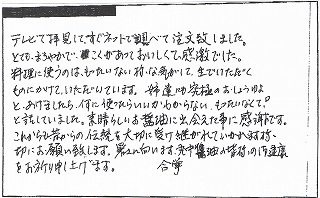 テレビで拝見して、すぐネットで調べて注文致しました。
とても、まろやかで、こくがあっておいしくて、感激でした。
料理に使うのは、もったいない様な気がして、生でいただく
ものにかけて、いただいています。姉達にも究極のおしょうゆよ
と、あげましたら、何に使ったらいいかわからない。もったいなくて。
と話していました。素晴らしいお醤油に出会えた事に感謝です。
これからも昔からの伝統を大切に受け継がれていかれます様、
切にお願い致します。寒さに向います。醤油の皆様の御健康
をお祈り申し上げます。 合掌